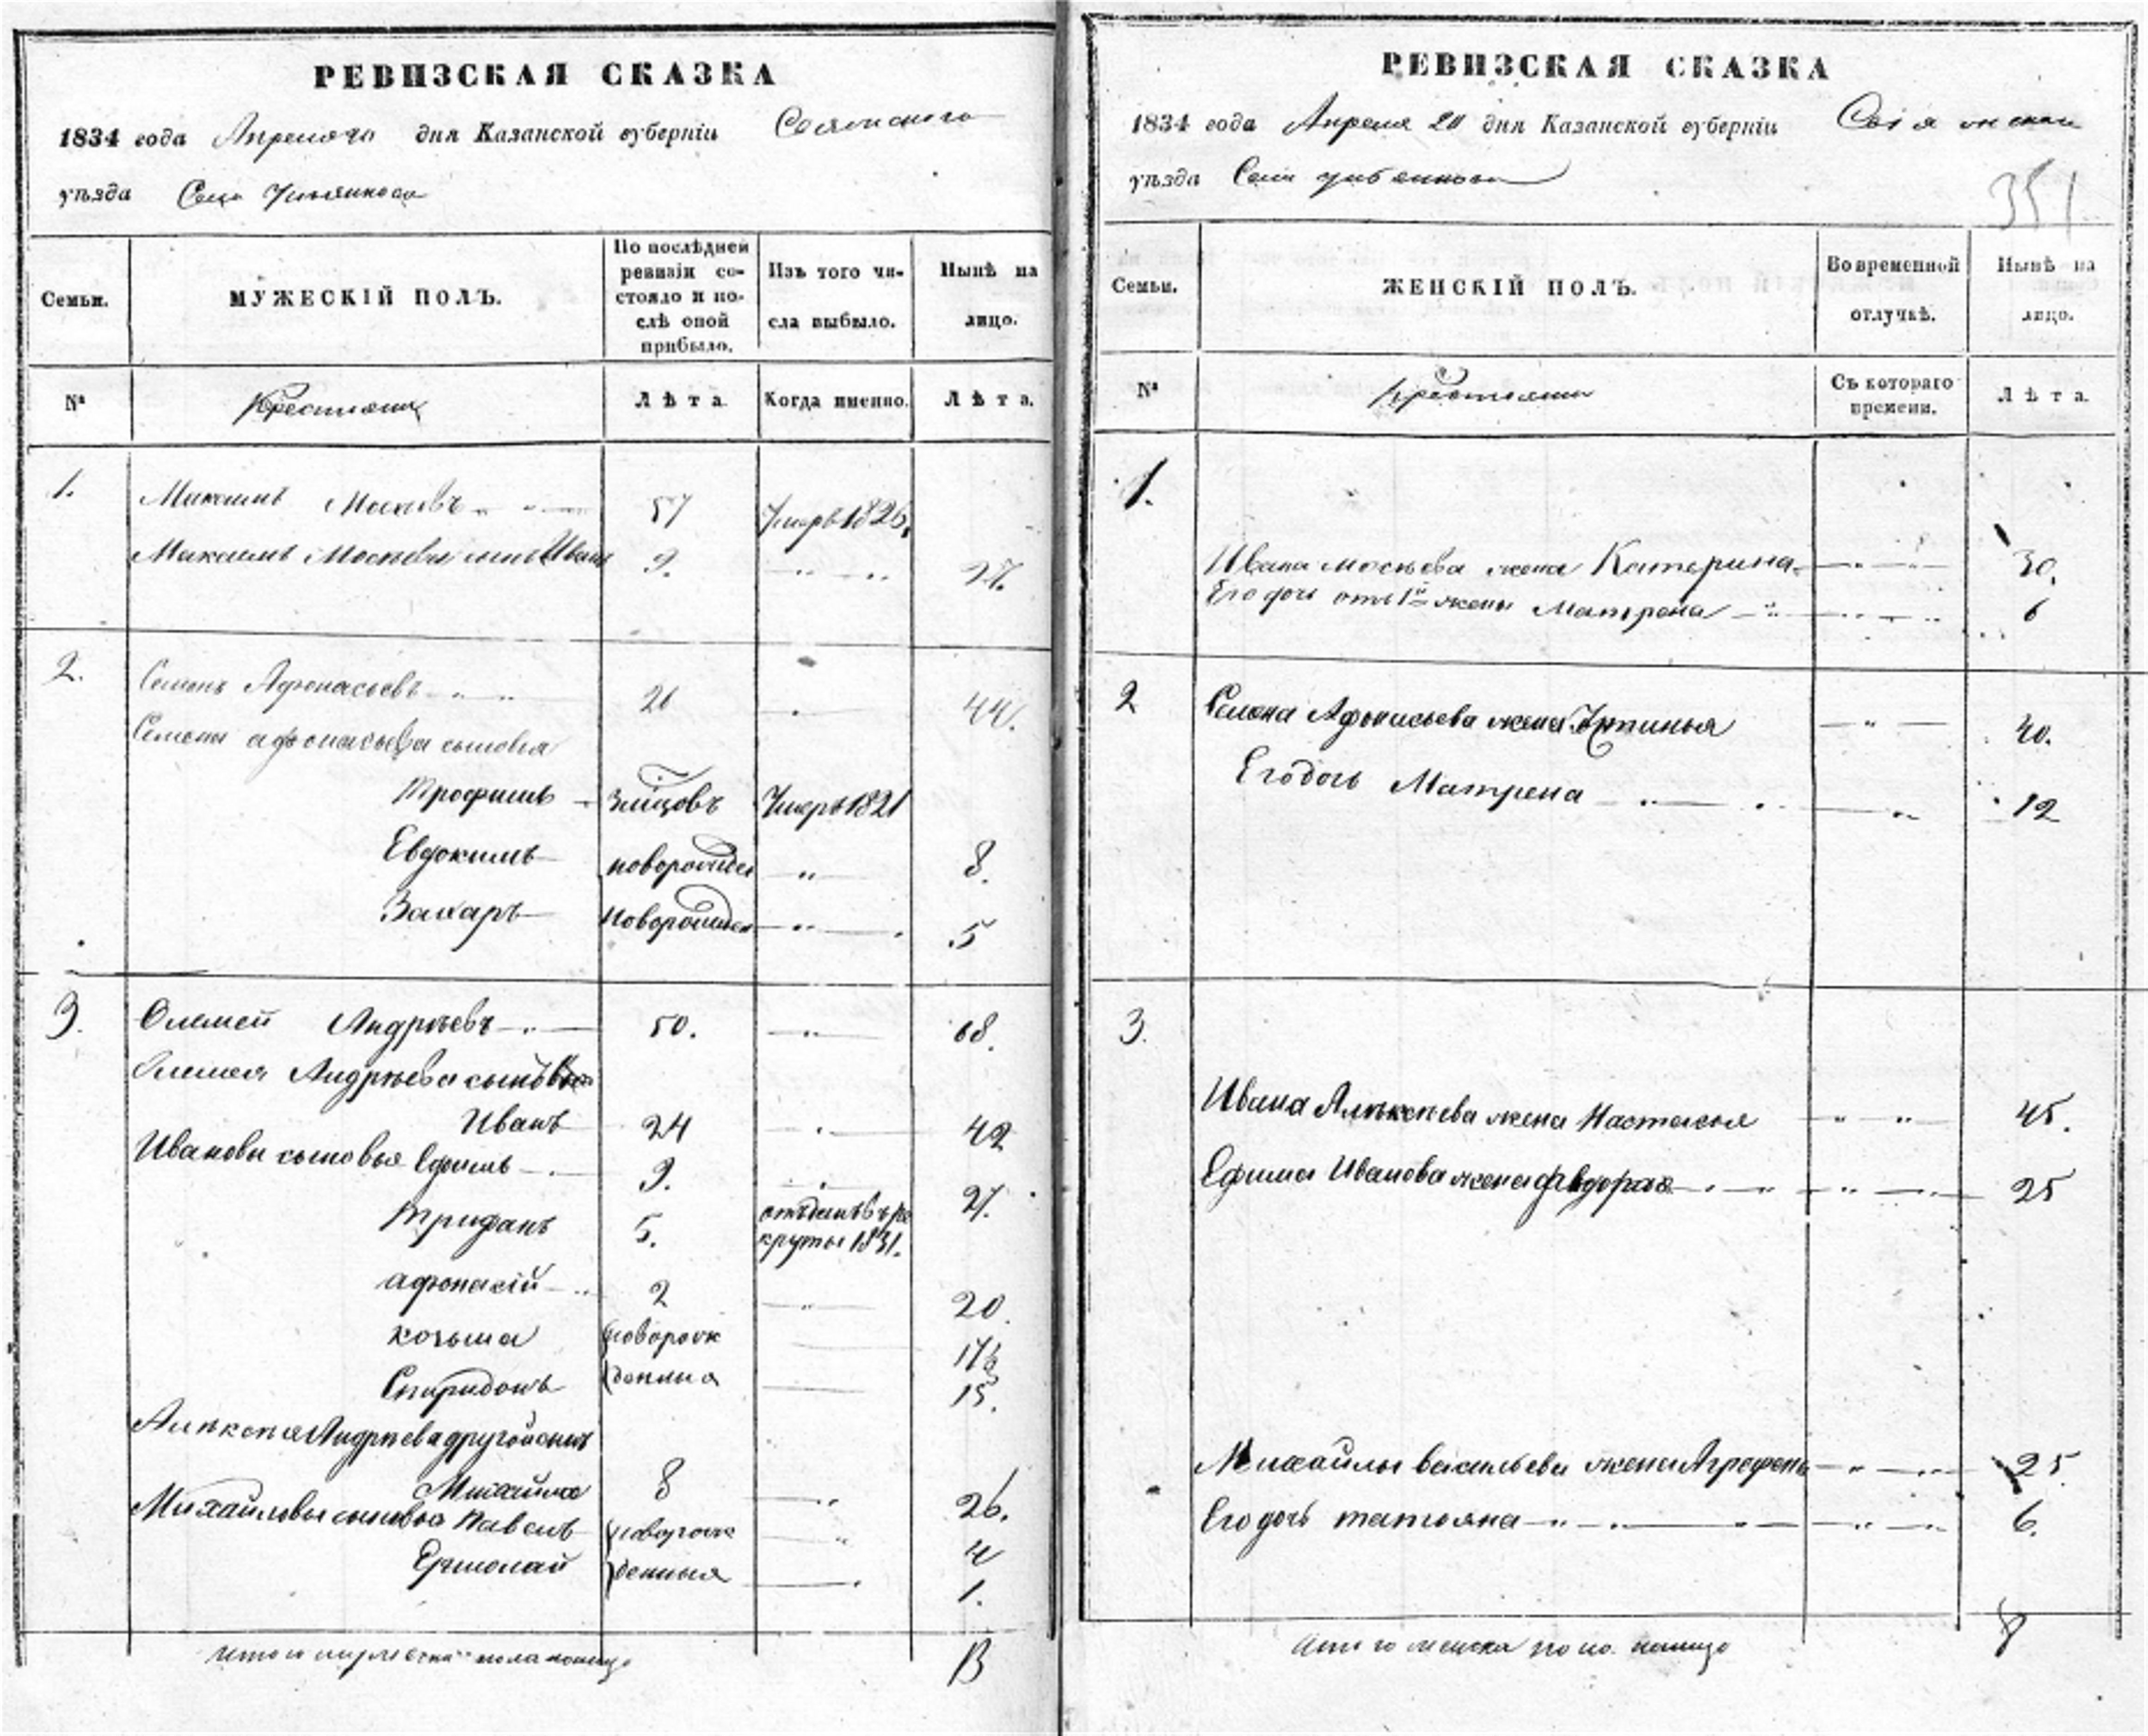 РЕВИЗСКАЯ СКАЗКА
1834 года Апреля 20 дня Казанской губерніи
уѣзда Села
Семьи.
МУЖЕСКІЙ ПОЛЪ.
По послѣдней
ревизіи со-
стояло и по-
слѣ оной
прибыло.
Изъ того чи-
сла выбыло.
Нынѣ на
лицо.
№
Крестьяне
Лѣта
Когда именно.
Лѣта.
1.
Максимъ Мосеевъ 57 Умеръ 1826.
Максима Мосеева сынъ Иванъ 9. 27.
2.
Семенъ Афонасьевъ 26 44.
Семена афонасьева сыновья
Трофимъ Умеръ 1821
Евдокимъ новорожден 8.
Захаръ новорожден 5
3.
Андрѣевъ 50. 68.
Андрѣева сыновья
Иванъ 24 42
Ивановы сыновья Ефимъ 9. 27.
Трифанъ 5. отданъ в ре
круты 1831.
афонасій 2 20
козьма новорож 17½
Спиридонъ денныя 15.
Алѣксѣя Андрѣева другой сынъ
Михайла 8 26.
Михайловы сыновья Павелъ новорож 4
Ермолай денныя 1.
Итого мужеска пола налицо 13
РЕВИЗСКАЯ СКАЗКА
1834 года Апреля 20 дня Казанской губерніи
уѣзда Села
351
Семьи.
ЖЕНСКІЙ ПОЛЪ.
Во временной
отлучкѣ.
Нынѣ на
лицо.
№
Крестьянки
Съ котораго
времени.
Лѣта.
1.
Ивана мосеева жена Катерина 30.
Его дочь отъ 1й жены Матрена 6
2
Семена Афонасьева жена Устинья 40.
Его дочь Матрена 12
3.
Ивана Алѣксѣева жена Настасья 45.
Ефима Иванова жена федора 25
Михайлы васильева жена Аграфена 25.
Его дочь татьяна 6.
Итого женска полу налицо 8